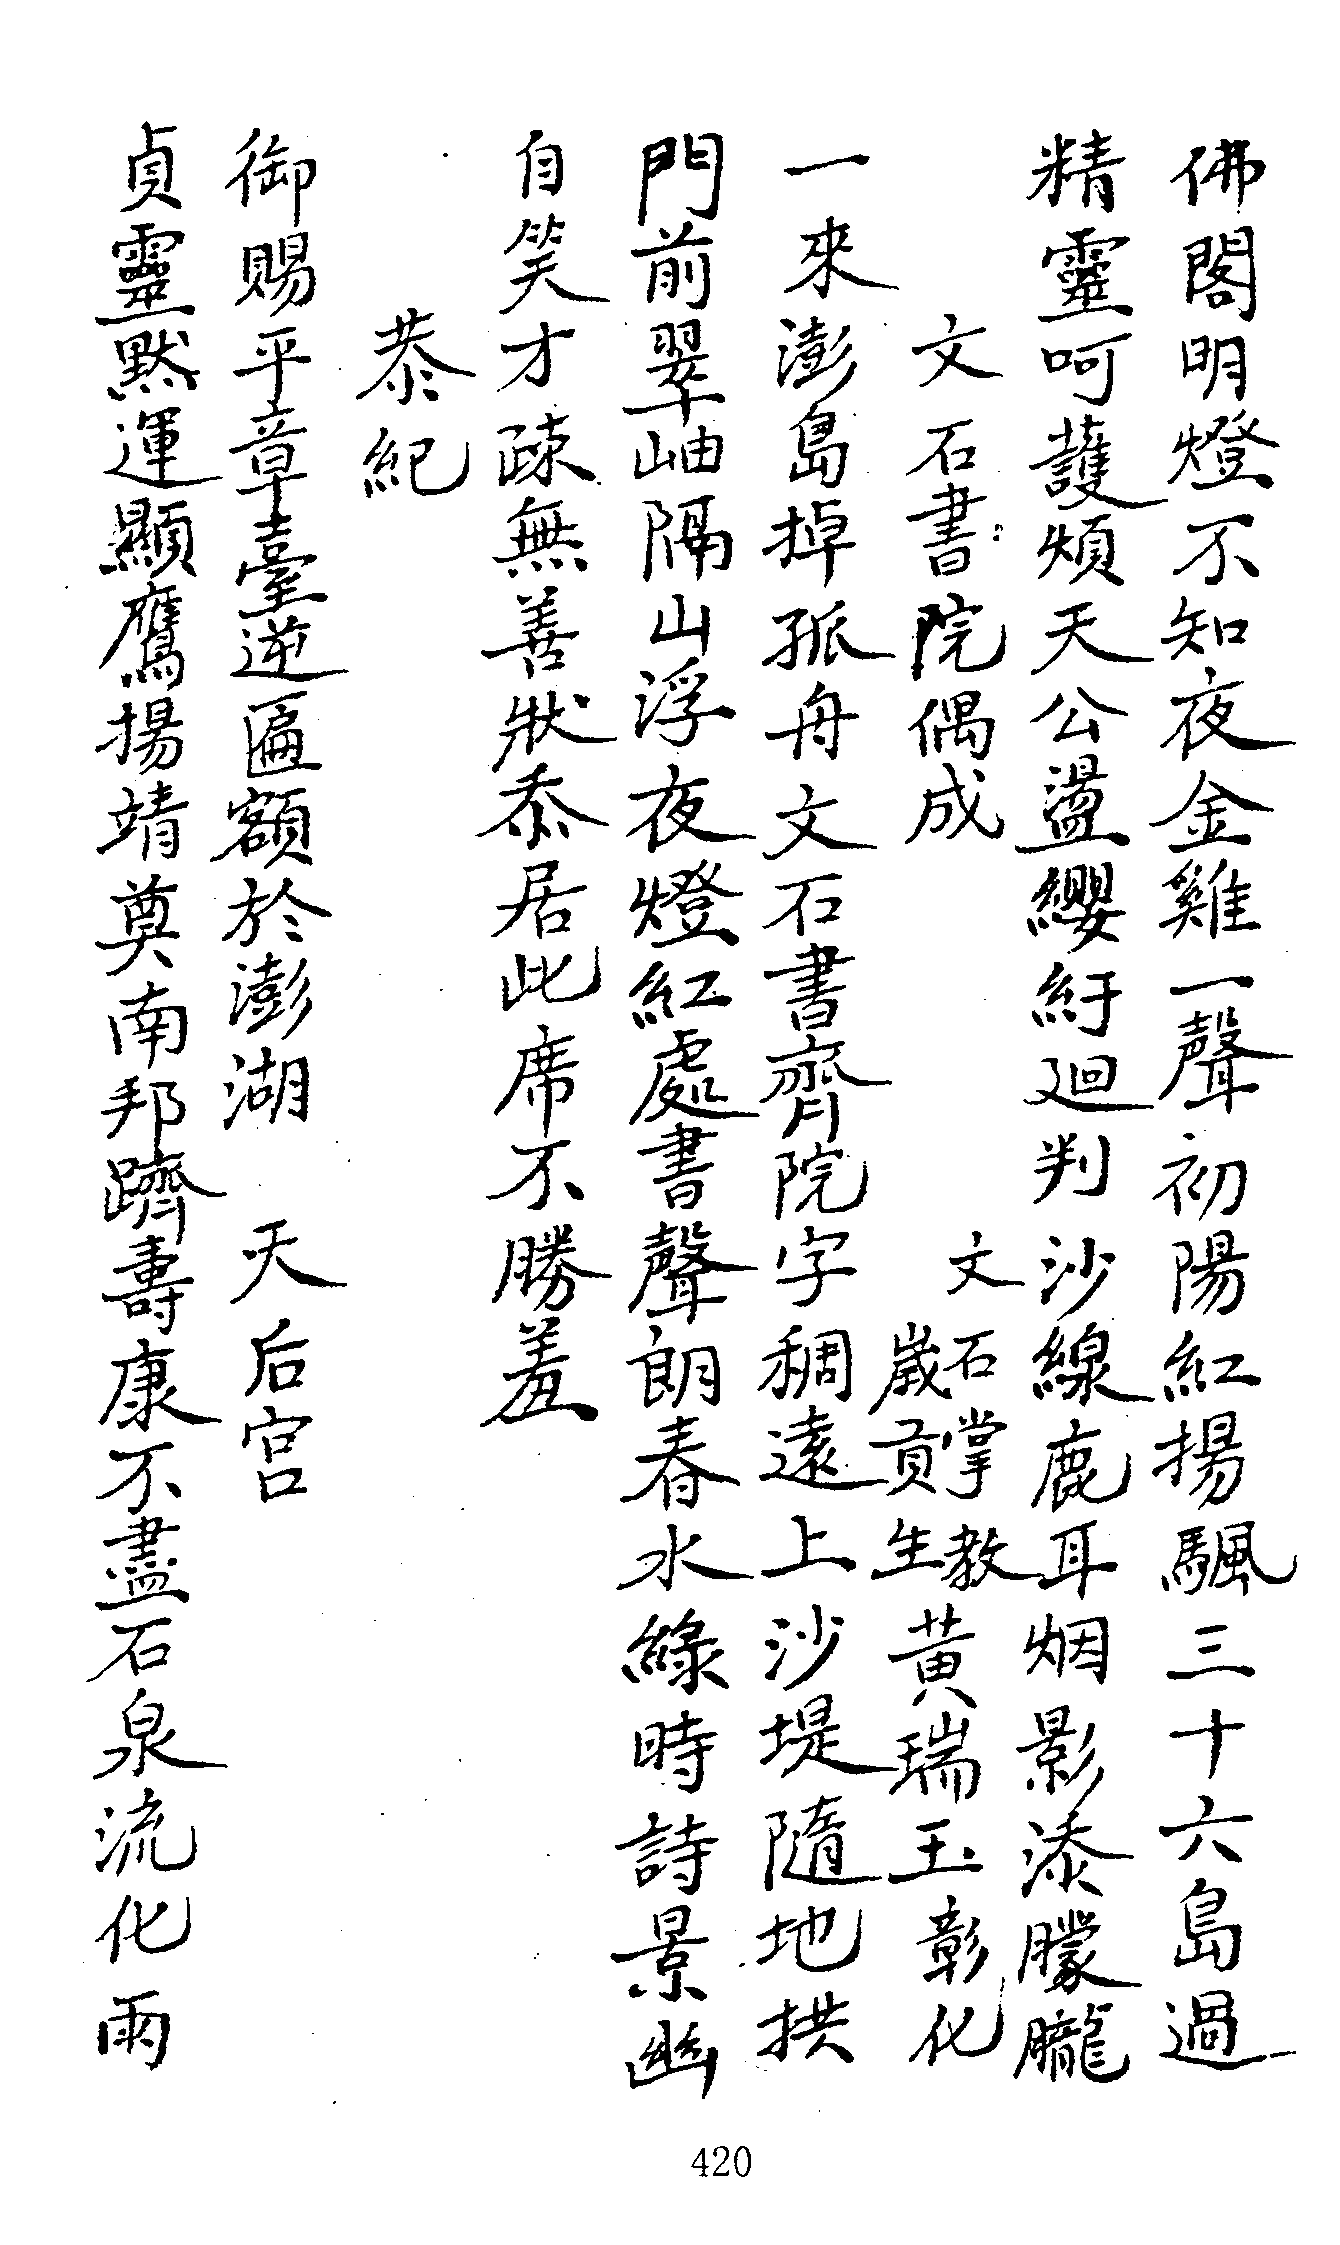 佛閣明燈不知夜金雞一聲初陽紅揚颿三十六島過
精靈呵護煩天公盪纓紆迴判沙線鹿耳烟影添朦朧
文石書院偶成 文石掌教歲貢生黃瑞玉彰化
一來澎島掉孤舟文石書齊院字稠遠上沙堤隨地拱
門前翠岫隔山浮夜燈紅處書聲朗春水綠時詩景幽
自笑才疎無善狀忝居此席不勝羞
恭紀
御賜平章臺逆匾額於澎湖 天后宮
貞靈默運顯鷹揚靖奠南邦躋壽康不盡石泉流化雨
420